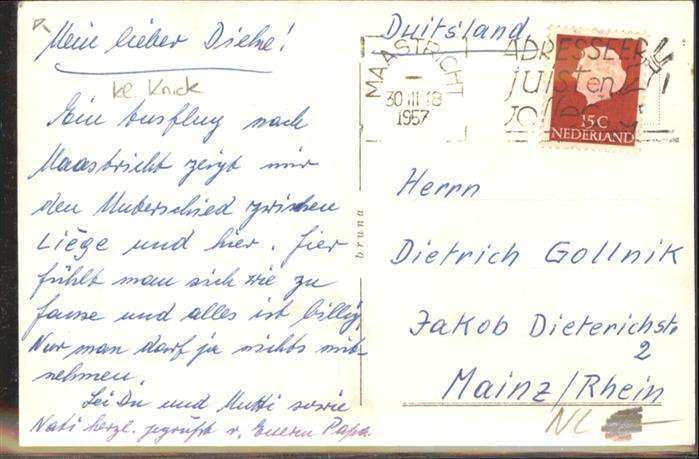 Mein lieber Dicke!
kl. Knick
Ein Ausflug nach
Maastricht zeigt mir
den Unterschied zwischen
Liège und hier. Hier
fühlt man sich wie zu
Hause und alles ist billig,
Nur man darf ja nichts mit-
nehmen.
Sei Du und Mutti sowie
Nati herzl. gegrüßt v. Eurem Papa.
bruna
Duitsland
MAASTRICHT
30 III 18
1957
ADRESSEER
JUIST EN
VOLLEDIG
15 C
NEDERLAND
Herrn
Dietrich Gollnik
Jakob Dieterichstr
2
Mainz/Rhein
NL